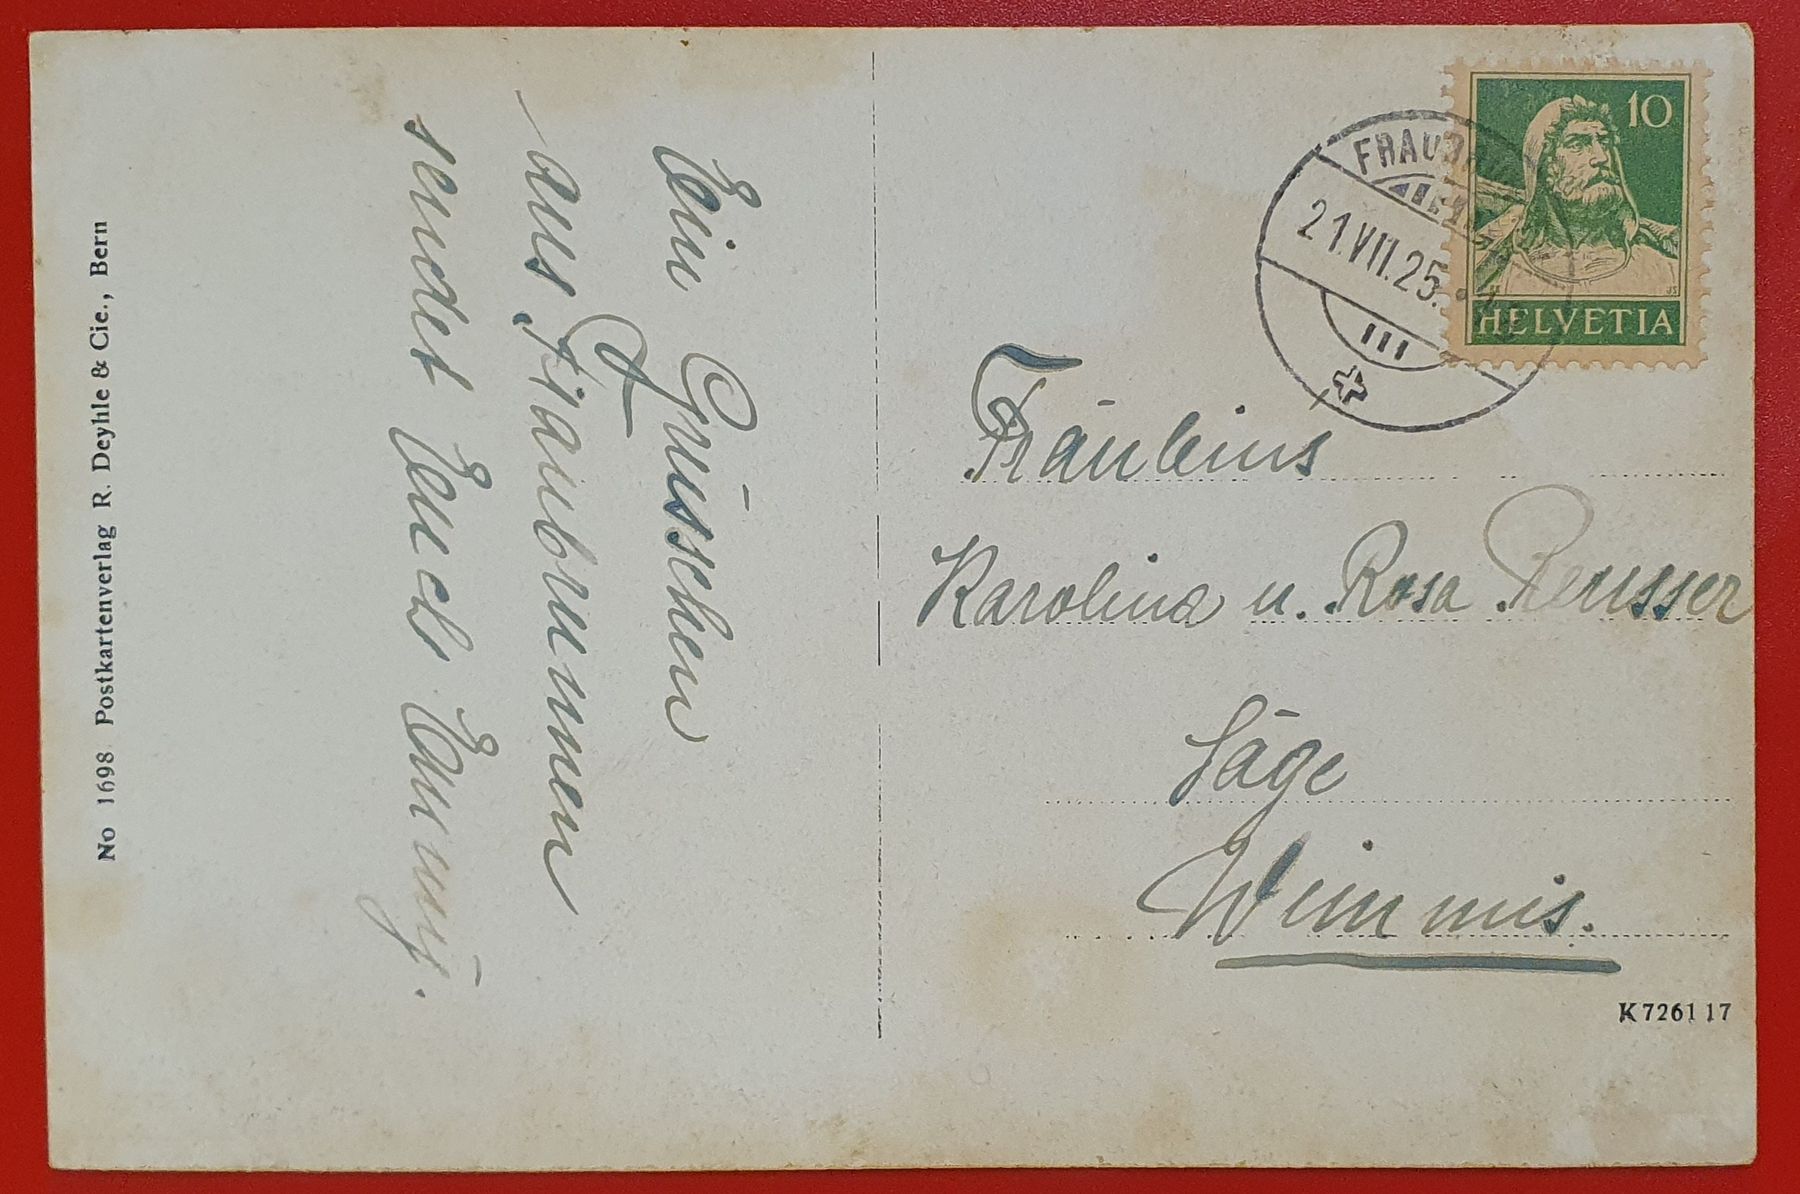 No 1698 Postkartenverlag R. Deyhle & Cie., Bern
Ein Grüsschen
aus Fraubrunnen
sendet Euch
10
HELVETIA
21.VII.25.
Fräuleins
Karolina u. Rosa Reusser
Säge
Wimmis.
K 7261 17